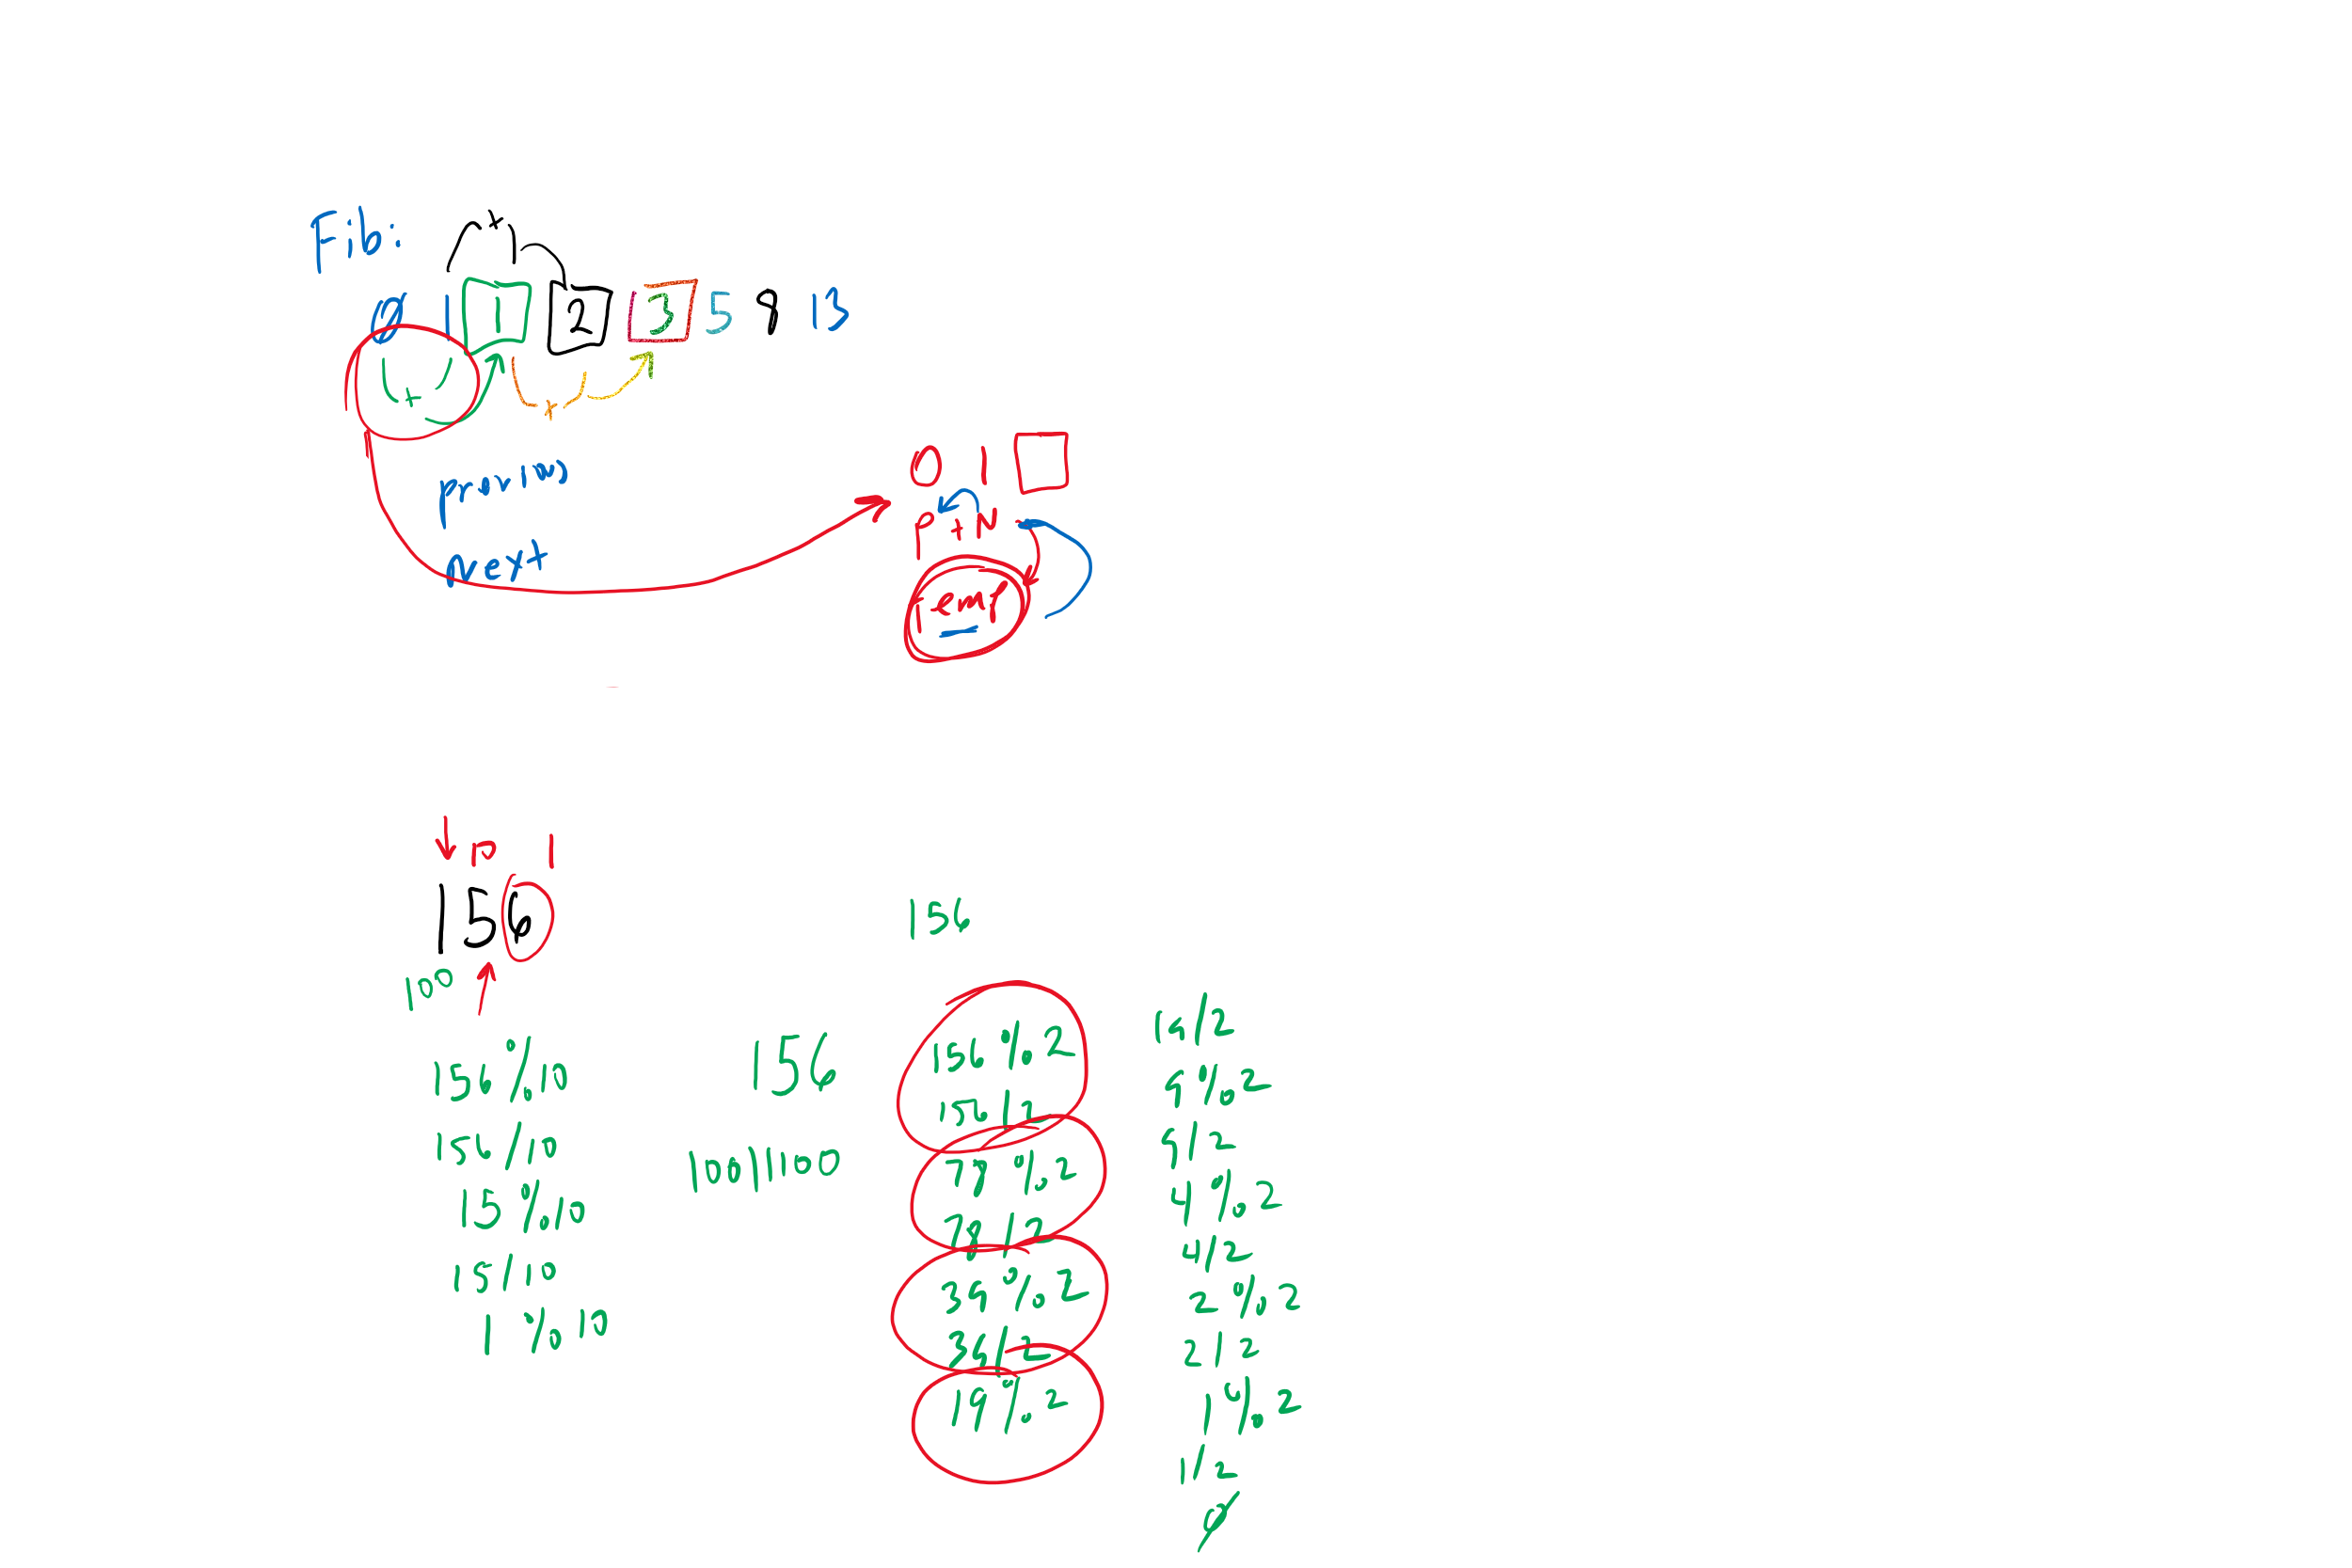 Fib:
+
0 1 1 2 3 5 8 13
+
+
previous
next
0 1
P + N
Temp
10 1
156
100
156 % 10
156 / 10
15 % 10
15 / 10
1 % 10
156
10011100
156
156 % 2
156 / 2
78 % 2
78 / 2
39 % 2
39 / 2
19 % 2
19 / 2
9 % 2
9 / 2
4 % 2
4 / 2
2 % 2
2 / 2
1 % 2
1 / 2
0